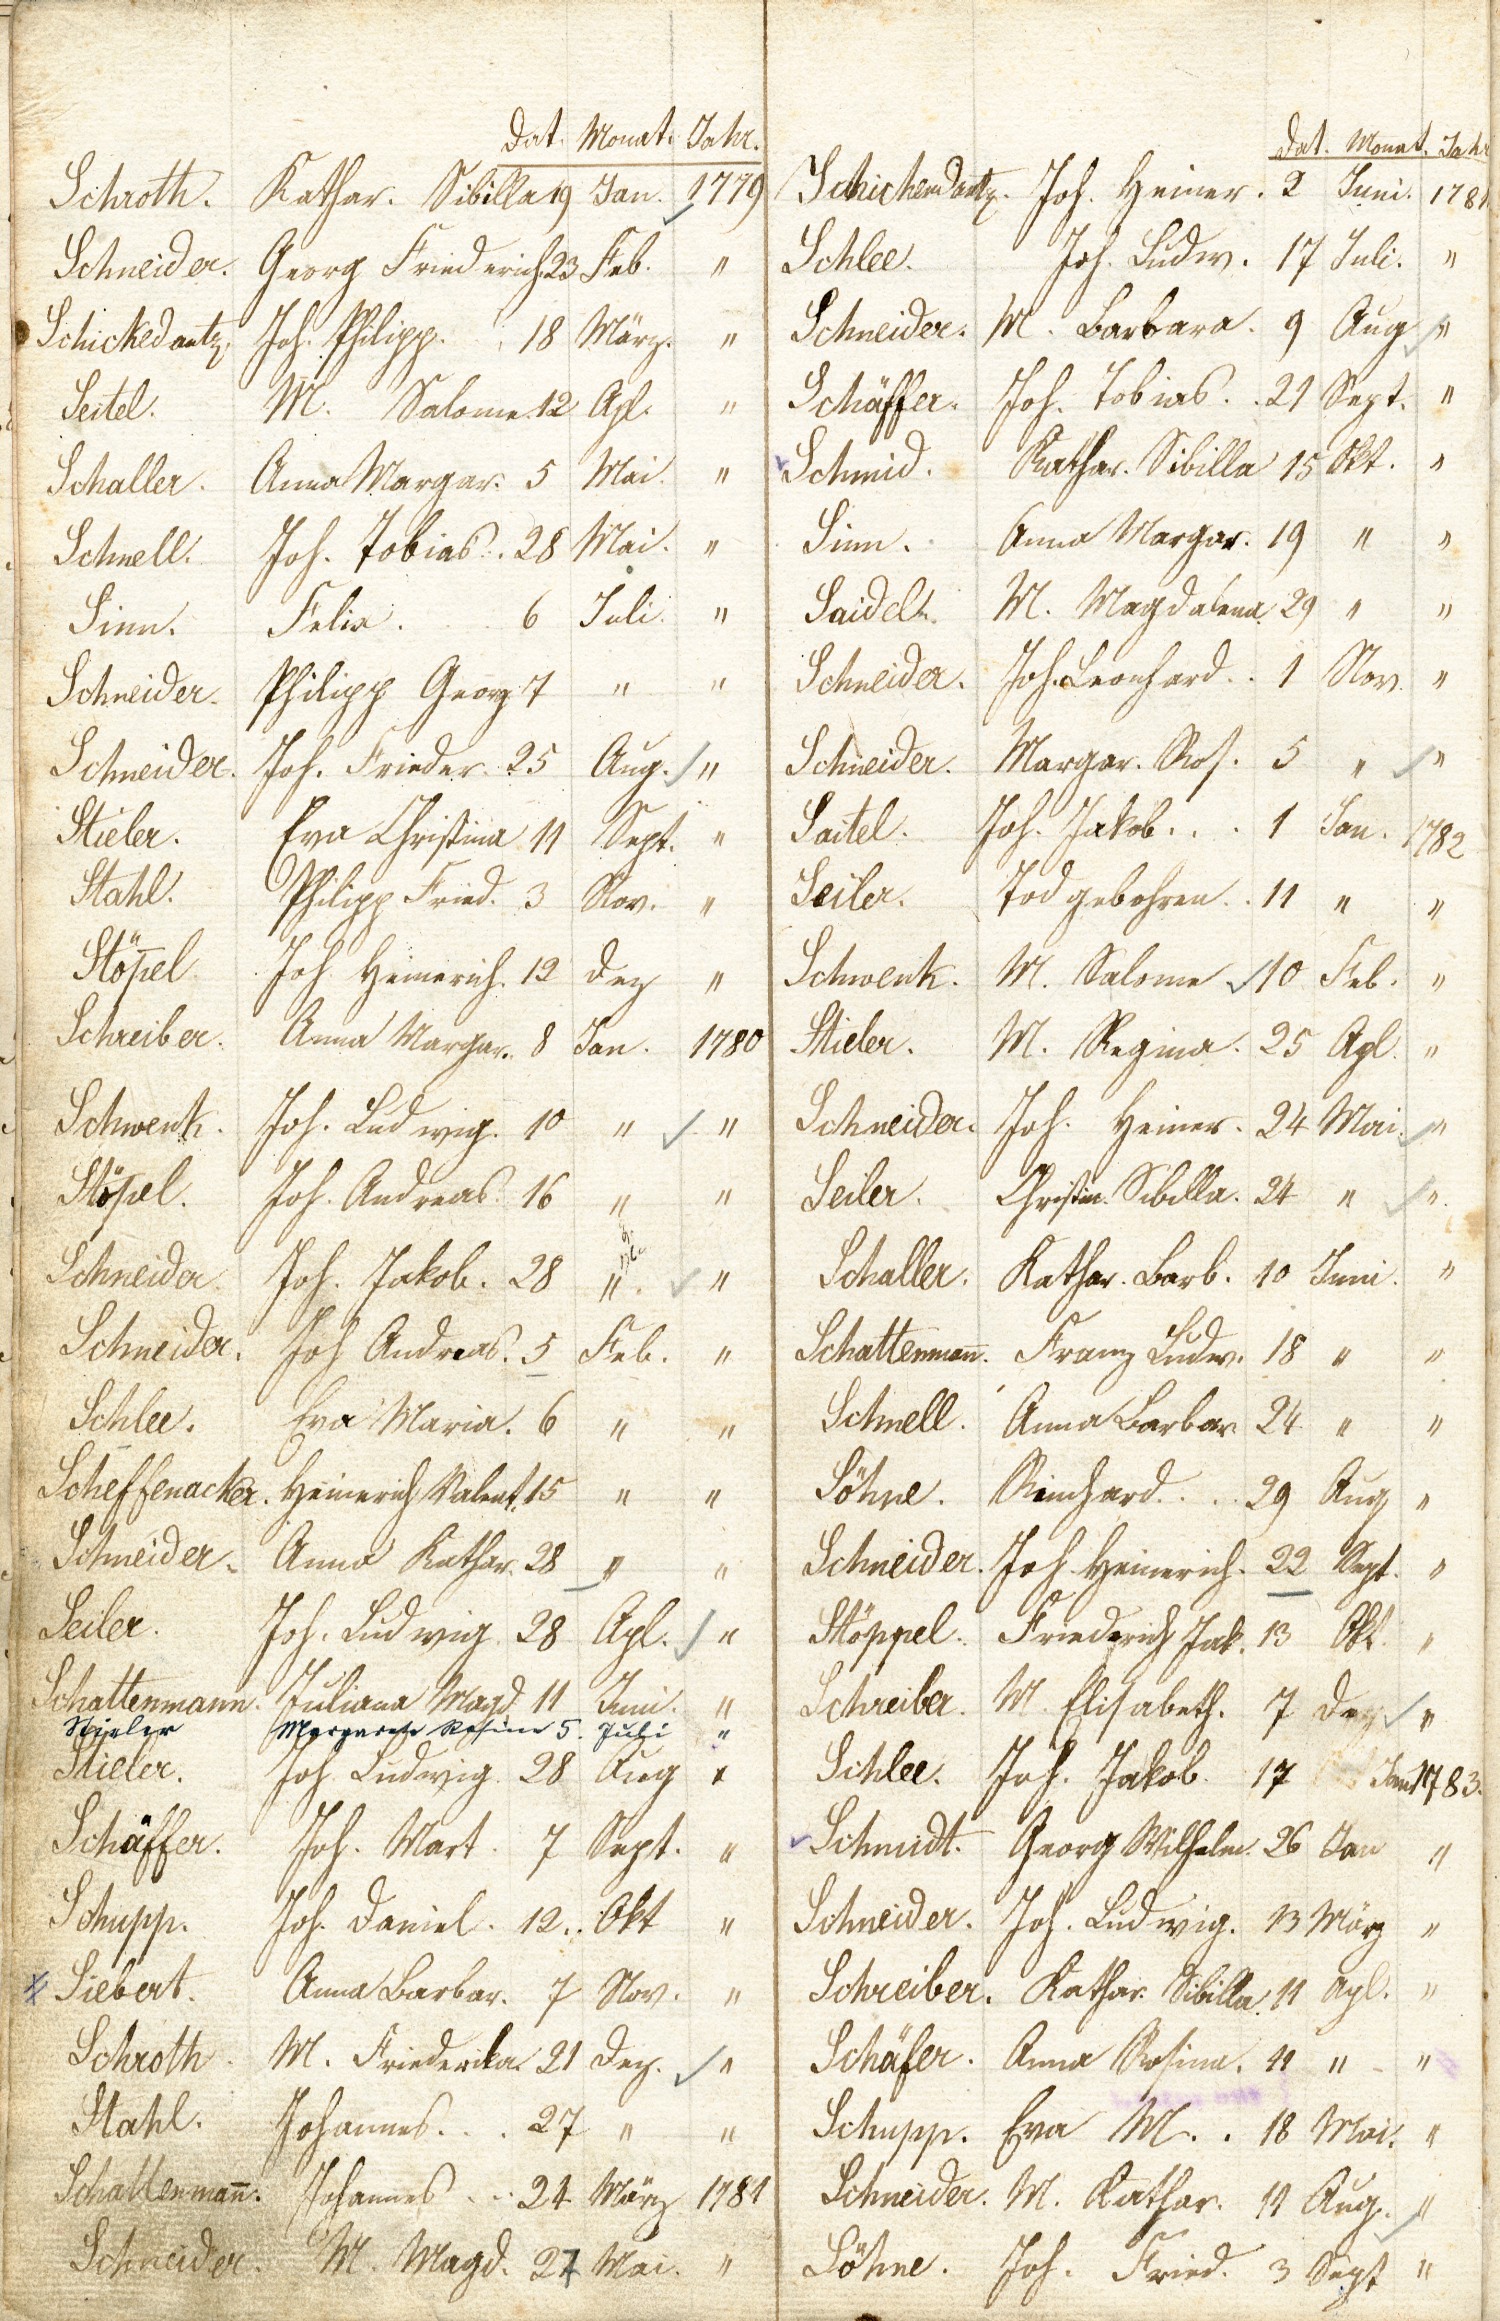 Dat. Monat. Jahr.
Schroth. Kathar. Sibilla 19 Jan. 1779
Schneider. Georg Friederich. 23 Feb. "
Schickedantz. Joh. Philipp. 18 März. "
Seitel. M. Salome. 12 Apl. "
Schaller. Anna Margar. 5 Mai. "
Schnell. Joh. Tobias. 28 Mai. "
Sinn. Felix. 6 Juli. "
Schneider. Philipp Georg 7 " "
Schneider. Joh. Frieder. 25 Aug. "
Stieler. Eva Christina 11 Sept. "
Stahl. Philipp Fried. 3 Nov. "
Stöppel Joh. Heinerich. 12 Dez "
Schreiber. Anna Margar. 8 Jan. 1780
Schwenk. Joh. Ludwig. 10 " "
Stöpel. Joh. Andreas. 16 " "
Schneider Joh. Jakob. 28 " "
Schneider. Joh Andreas. 5 Feb. "
Schlee. Eva Maria. 6 " "
Scheffenacker. Heinerich Valent. 15 " "
Schneider. Anna Kathar. 28 " "
Seiler. Joh. Ludwig. 28 Apl. "
Schattenmann. Juliana Magd. 11 Juni. "
Stieler Margareta Rosina 5. Juli "
Stieler. Joh. Ludwig. 28 Aug "
Schäffer. Joh. Mart. 7 Sept. "
Schupp. Joh. Daniel. 12. Okt "
Siebert. Anna Barbar. 7 Nov. "
Schroth. M. Friederika. 21 Dez. "
Stahl. Johannes. . . 27 " "
Schattenmañ. Johannes . . 24 März 1781
Schneider. M. Magd. 27 Mai. "
Dat. Monat. Jahr
Schickendantz. Joh. Heiner. 2 Juni. 1781
Schlee. Joh. Ludw. 17 Juli. "
Schneider. M. Barbara. 9 Aug "
Schäffer. Joh. Tobias. . 21 Sept. "
Schmid. Kathar. Sibilla 15 Okt. "
Sinn. Anna Margar. 19 " "
Saidel. M. Magdalena. 29 " "
Schneider. Joh. Leonhard. . 1 Nov. "
Schneider. Margar. Ros. 5 " "
Saitel. Joh. Jakob. . . 1 Jan. 1782
Seiler. Tod gebohren. . 11 " "
Schwenk. M. Salome 10 Feb. "
Stieler. M. Regina. 25 Apl. "
Schneider. Joh. Heiner. 24 Mai. "
Seiler. Christin. Sibilla. 24 " "
Schaller. Kathar. Barb. 10 Juni. "
Schattenmañ. Franz Ludw. 18 " "
Schnell. Anna Barbar 24 " "
Söhne. Reinhard. . . 29 Aug "
Schneider. Joh. Heinerich. 22 Sept. "
Stöppel. Friederich Jak. 13 Okt. "
Schreiber. M. Elisabeth. 7 Dez "
Schlee. Joh. Jakob. 17 Jan 1783.
Schmidt. Georg Wilhelm. 26 Jan "
Schneider. Joh. Ludwig. 13 März "
Schreiber. Kathar. Sibilla. 11 Apl. "
Schäfer. Anna Rosina. 11 " "
Schupp. Eva M. . 18 Mai. "
Schneider. M. Kathar. 11 Aug. "
Söhne. Joh. Fried. 3 Sept "